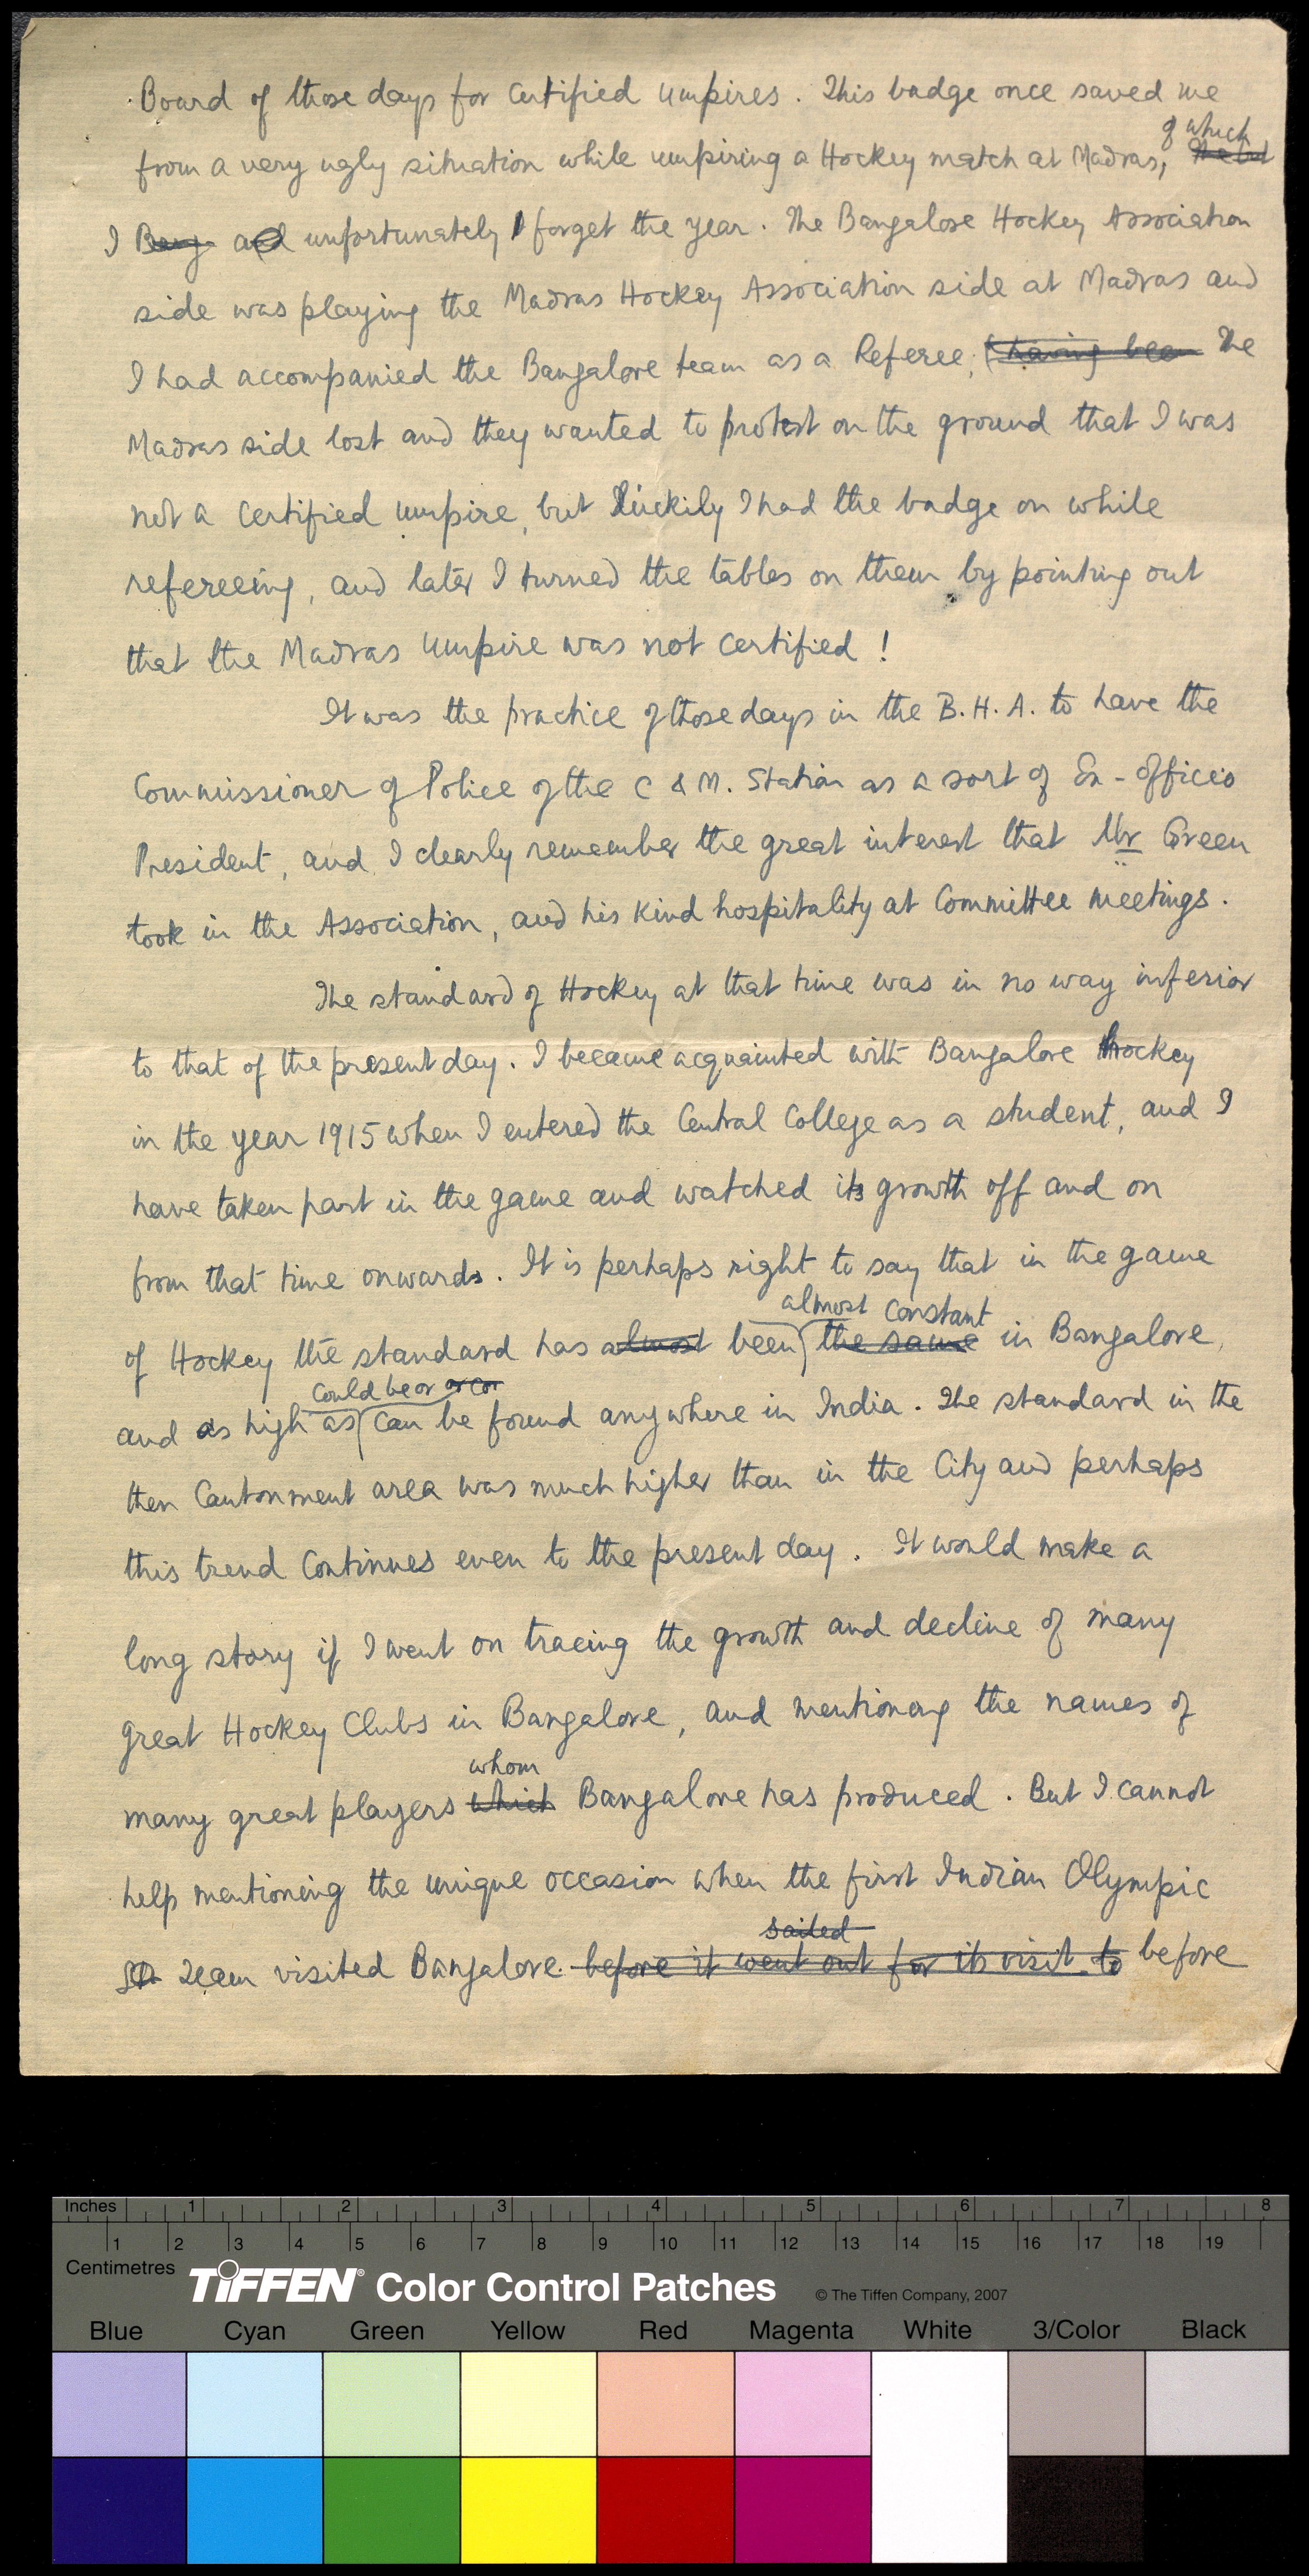 Board of those days for Certified Umpires. This badge once saved me
of which
from a very ugly situation while umpiring a Hockey match at Madras,
I Bang and unfortunately I forget the year. The Bangalore Hockey Association
side was playing the Madras Hockey Association side at Madras and
I had accompanied the Bangalore team as a Referee, (having been The
Madras side lost and they wanted to protest on the ground that I was
not a certified umpire, but luckily I had the badge on while
refereeing, and later I turned the tables on them by pointing out
that the Madras Umpire was not certified!
It was the practice of those days in the B.H.A. to have the
Commissioner of Police of the C & M. Station as a sort of Ex-officio
President, and I clearly remember the great interest that Mr Green
took in the Association, and his kind hospitality at Committee meetings.
The standard of Hockey at that time was in no way inferior
to that of the present day. I became acquainted with Bangalore Hockey
in the year 1915 when I entered the Central College as a student, and I
have taken part in the game and watched its growth off and on
from that time onwards. It is perhaps right to say that in the game
almost constant
of Hockey the standard has almost been the same in Bangalore,
could be or or cor
and as high as can be found anywhere in India. The standard in the
then Cantonment area was much higher than in the City and perhaps
this trend continues even to the present day. It would make a
long story if I went on tracing the growth and decline of many
great Hockey Clubs in Bangalore, and mentioning the names of
whom
many great players which Bangalore has produced. But I cannot
help mentioning the unique occasion when the first Indian Olympic
sailed
Team visited Bangalore before it went out for its visit to before
Inches 1 2 3 4 5 6 7 8
1 2 3 4 5 6 7 8 9 10 11 12 13 14 15 16 17 18 19
Centimetres
TIFFEN® Color Control Patches © The Tiffen Company, 2007
Blue Cyan Green Yellow Red Magenta White 3/Color Black